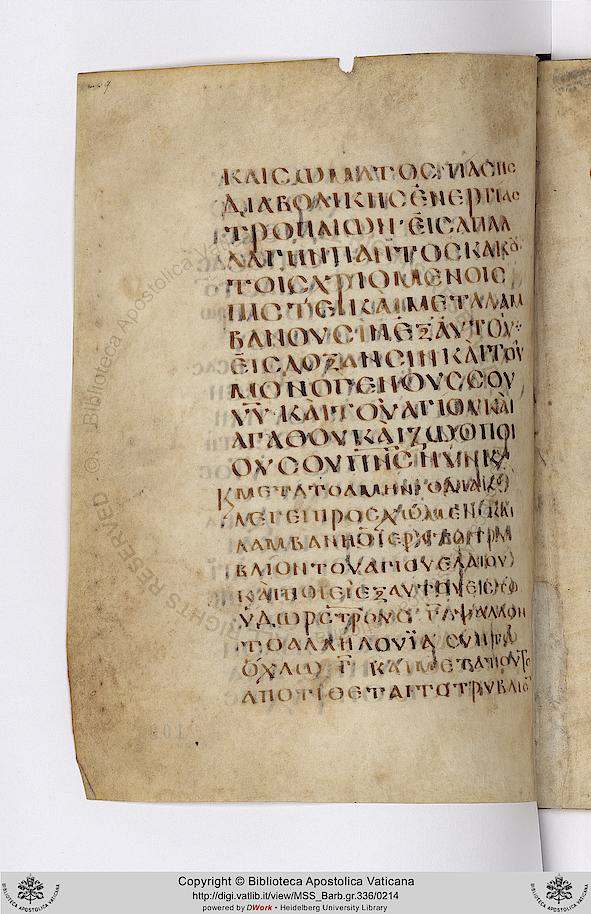 ΚΑΙ ΣΩΜΑΤΟΣ ΠΑΣΗΣ
ΔΙΑΒΟΛΙΚΗΣ ΕΝΕΡΓΙΑΣ
ΤΡΟΠΑΙΩΝ ΕΙΣ ΑΠΑΛ
ΛΑΓΗΝ ΠΑΝΤΟΣ ΚΑΚΟΥ
ΤΟΙΣ ΧΡΙΟΜΕΝΟΙΣ
ΠΙΣΤΕΙ ΚΑΙ ΜΕΤΑΛΑΜ
ΒΑΝΟΥΣΙΝ ΕΞ ΑΥΤΟΥ
ΕΙΣ ΔΟΞΑΝ ΣΗΝ ΚΑΙ ΤΟΥ
ΜΟΝΟΓΕΝΟΥΣ ΣΟΥ
ΥΥ ΚΑΙ ΤΟΥ ΑΓΙΟΥ ΚΑΙ
ΑΓΑΘΟΥ ΚΑΙ ΖΩΟΠΟΙ
ΟΥ ΣΟΥ ΠΝΣ ΝΥΝ Κ
Κ ΜΕΤΑ ΤΟ ΑΜΗΝ
ΛΑΜΒΑΝΕΙ Ο ΙΕΡΕΥΣ ΤΟ ΤΡΥ
ΒΛΙΟΝ ΤΟΥ ΑΓΙΟΥ ΕΛΑΙΟΥ
ΚΑΙ ΠΟΙΕΙ ΕΞ ΑΥΤΟΥ ΕΙΣ ΤΟ
ΥΔΩΡ ΣΤΡΟΥΣ Γ ΨΑΛΛΩΝ
ΤΟ ΑΛΛΗΛΟΥΙΑ ΣΥΝ ΤΩ
ΟΧΛΩ Γ ΚΑΙ ΜΕΤΑ ΤΟΥΤΟ
ΑΠΟΤΙΘΕΤΑΙ ΤΟ ΤΡΥΒΛΙΟΝ
Copyright © Biblioteca Apostolica Vaticana
http://digi.vatlib.it/view/MSS_Barb.gr.336/0214
powered by DWork • Heidelberg University Library